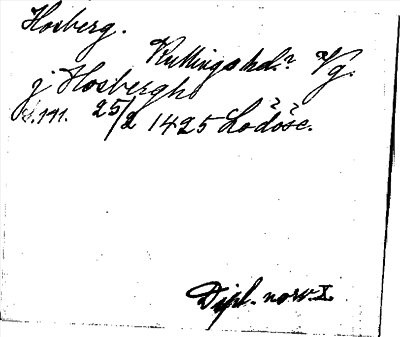 Hosberg.
Kullings hd.? Vg.
j Hosbergh
s.m. 25/2 1425 Lödöse.
Dipl. norv. X.